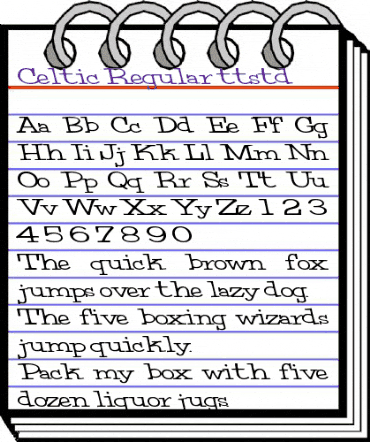 Celtic Regular ttstd
Aa Bb Cc Dd Ee Ff Gg
Hh Ii Jj Kk Ll Mm Nn
Oo Pp Qq Rr Ss Tt Uu
Vv Ww Xx Yy Zz 1 2 3
4 5 6 7 8 9 0
The quick brown fox
jumps over the lazy dog
The five boxing wizards
jump quickly.
Pack my box with five
dozen liquor jugs